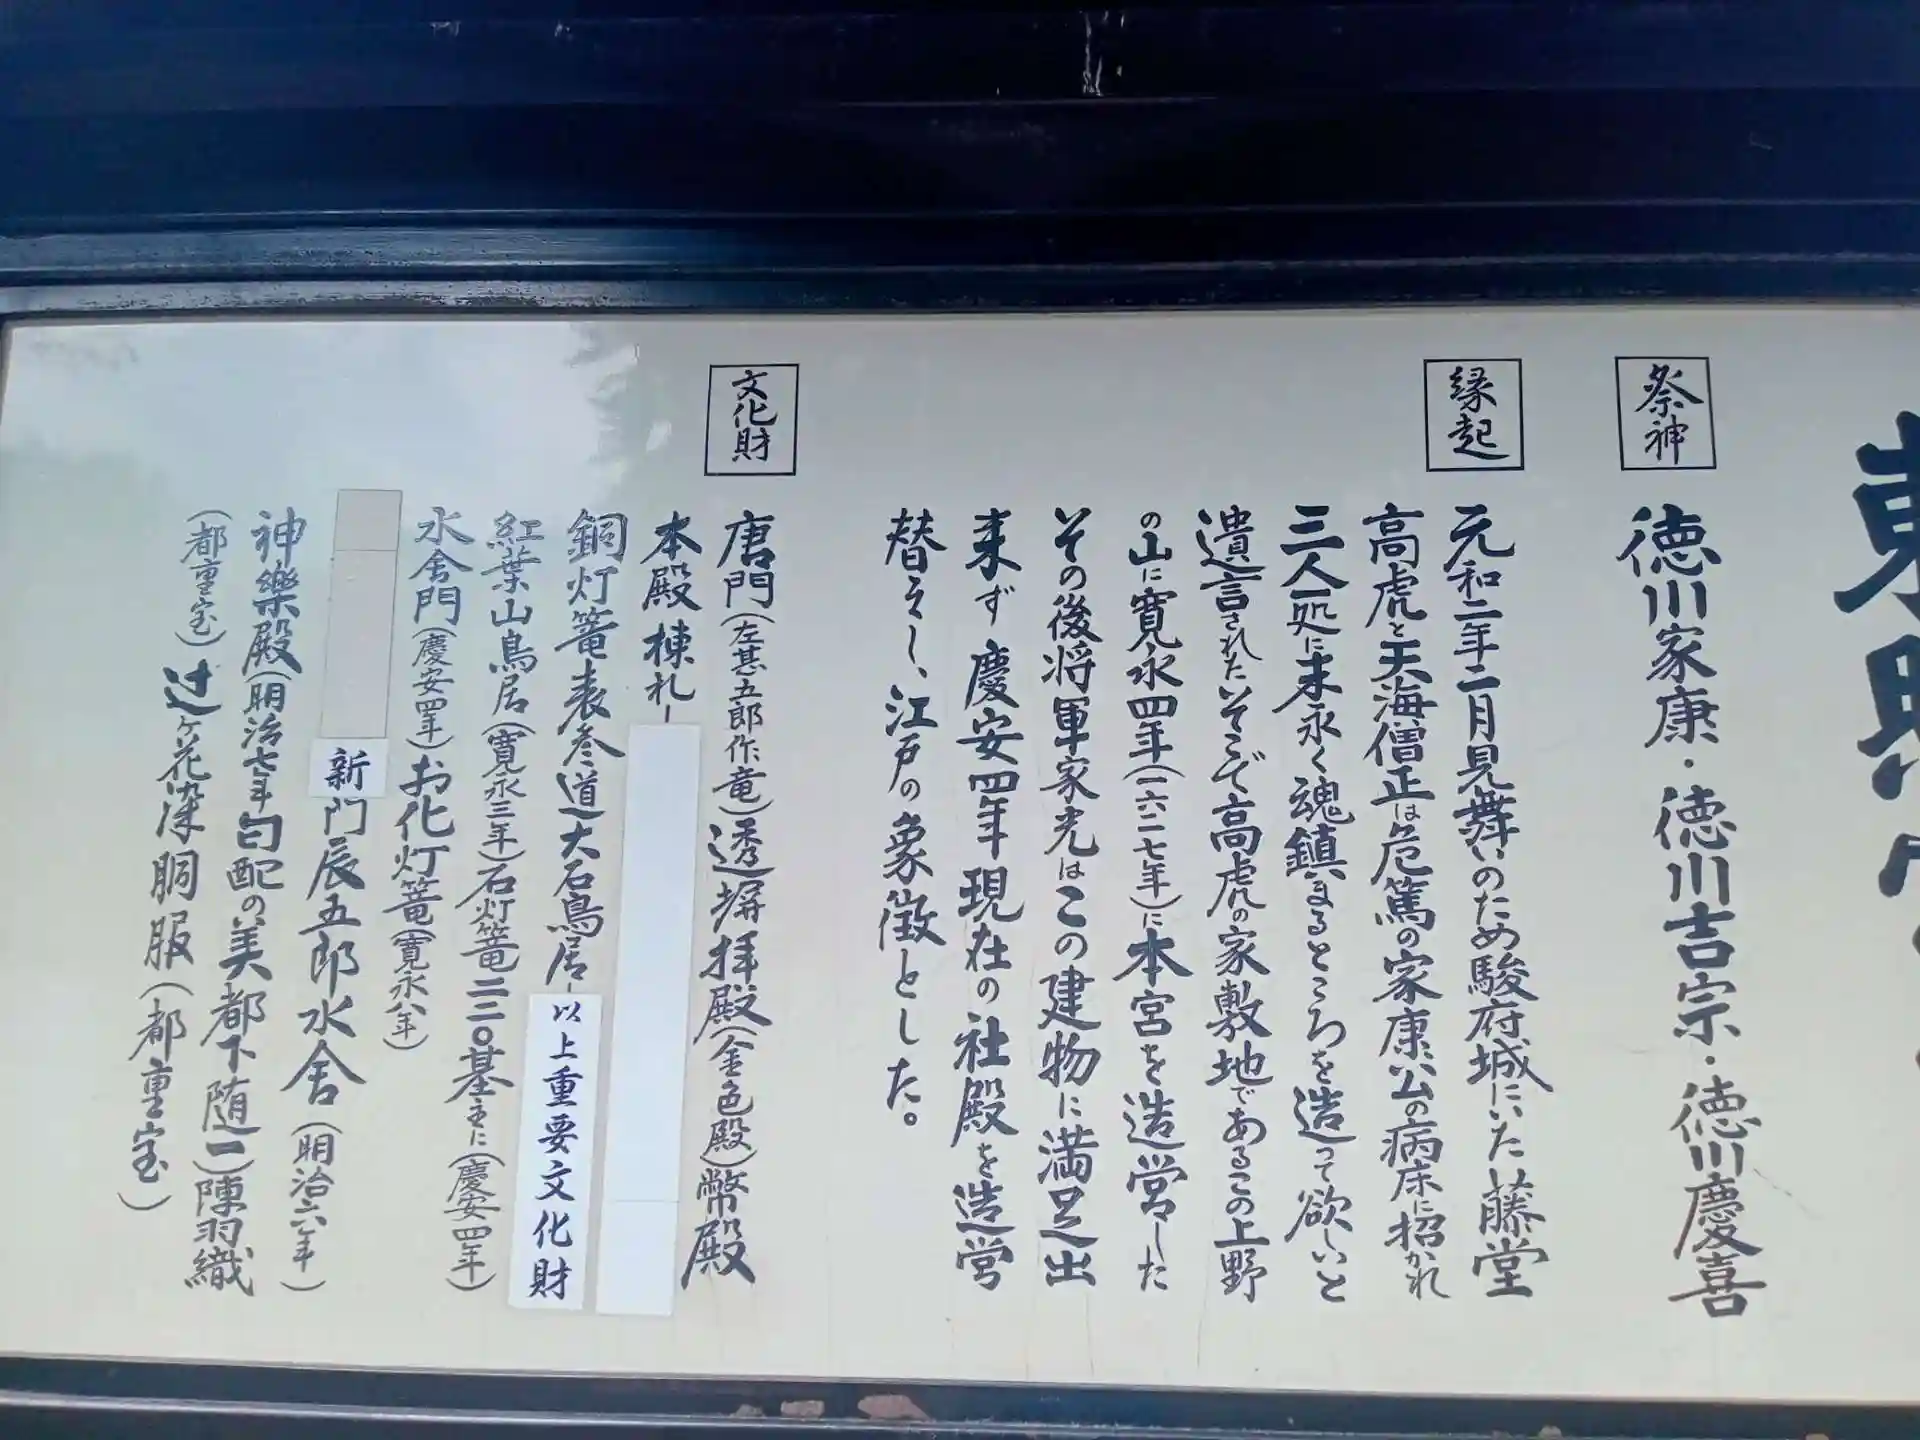 東照
祭神
徳川家康・徳川吉宗・徳川慶喜
縁起
元和二年二月見舞いのため駿府城にいた藤堂
高虎と天海僧正は危篤の家康公の病床に招かれ
三人一処に末永く魂鎮まるところを造って欲しいと
遺言されたいそこで高虎の家敷地であるこの上野
の山に寛永四年(一六二七年)に本宮を造営した
その後将軍家光はこの建物に満足出
来ず慶安四年現在の社殿を造営
替えし、江戸の象徴とした。
文化財
唐門(左甚五郎作竜)透塀拝殿(金色殿)幣殿
本殿棟札
銅灯篭表参道大石鳥居 以上重要文化財
紅葉山鳥居(寛永三年)石灯篭二二〇基主に(慶安四年)
水舎門(慶安四年)お化灯篭(寛永八年)
新門辰五郎水舎(明治六年)
神樂殿(明治七年勾配の美都下随一)陣羽織
(都重宝)辻ヶ花染胴服(都重宝)